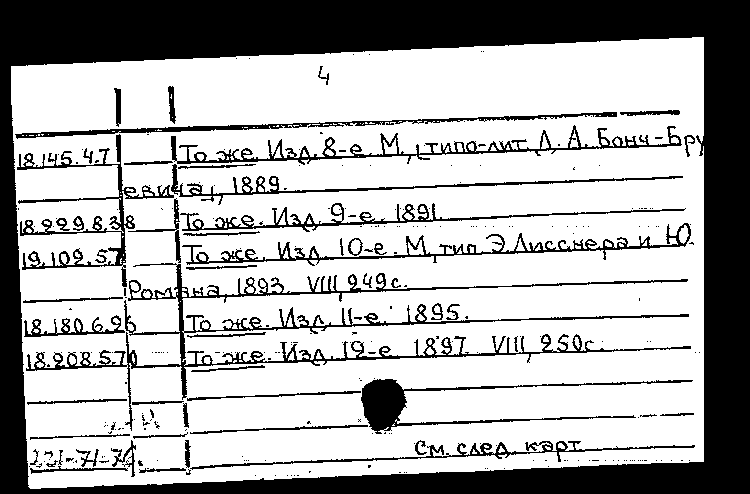 4
18.145.4.7 То же. Изд. 8-е М., [типо-лит. Д. А. Бонч-Бру
евича], 1889.
18.229.8.38 То же. Изд. 9-е. 1891.
19.109.57 То же. Изд. 10-е. М, тип. Э. Лисснера и Ю.
Романа, 1893. VIII, 249 с.
18.180.6.26 То же. Изд. 11-е. 1895.
18.208.5.70 То же. Изд. 12-е 1897. VIII, 250с.
221-71-76. См. след. карт.